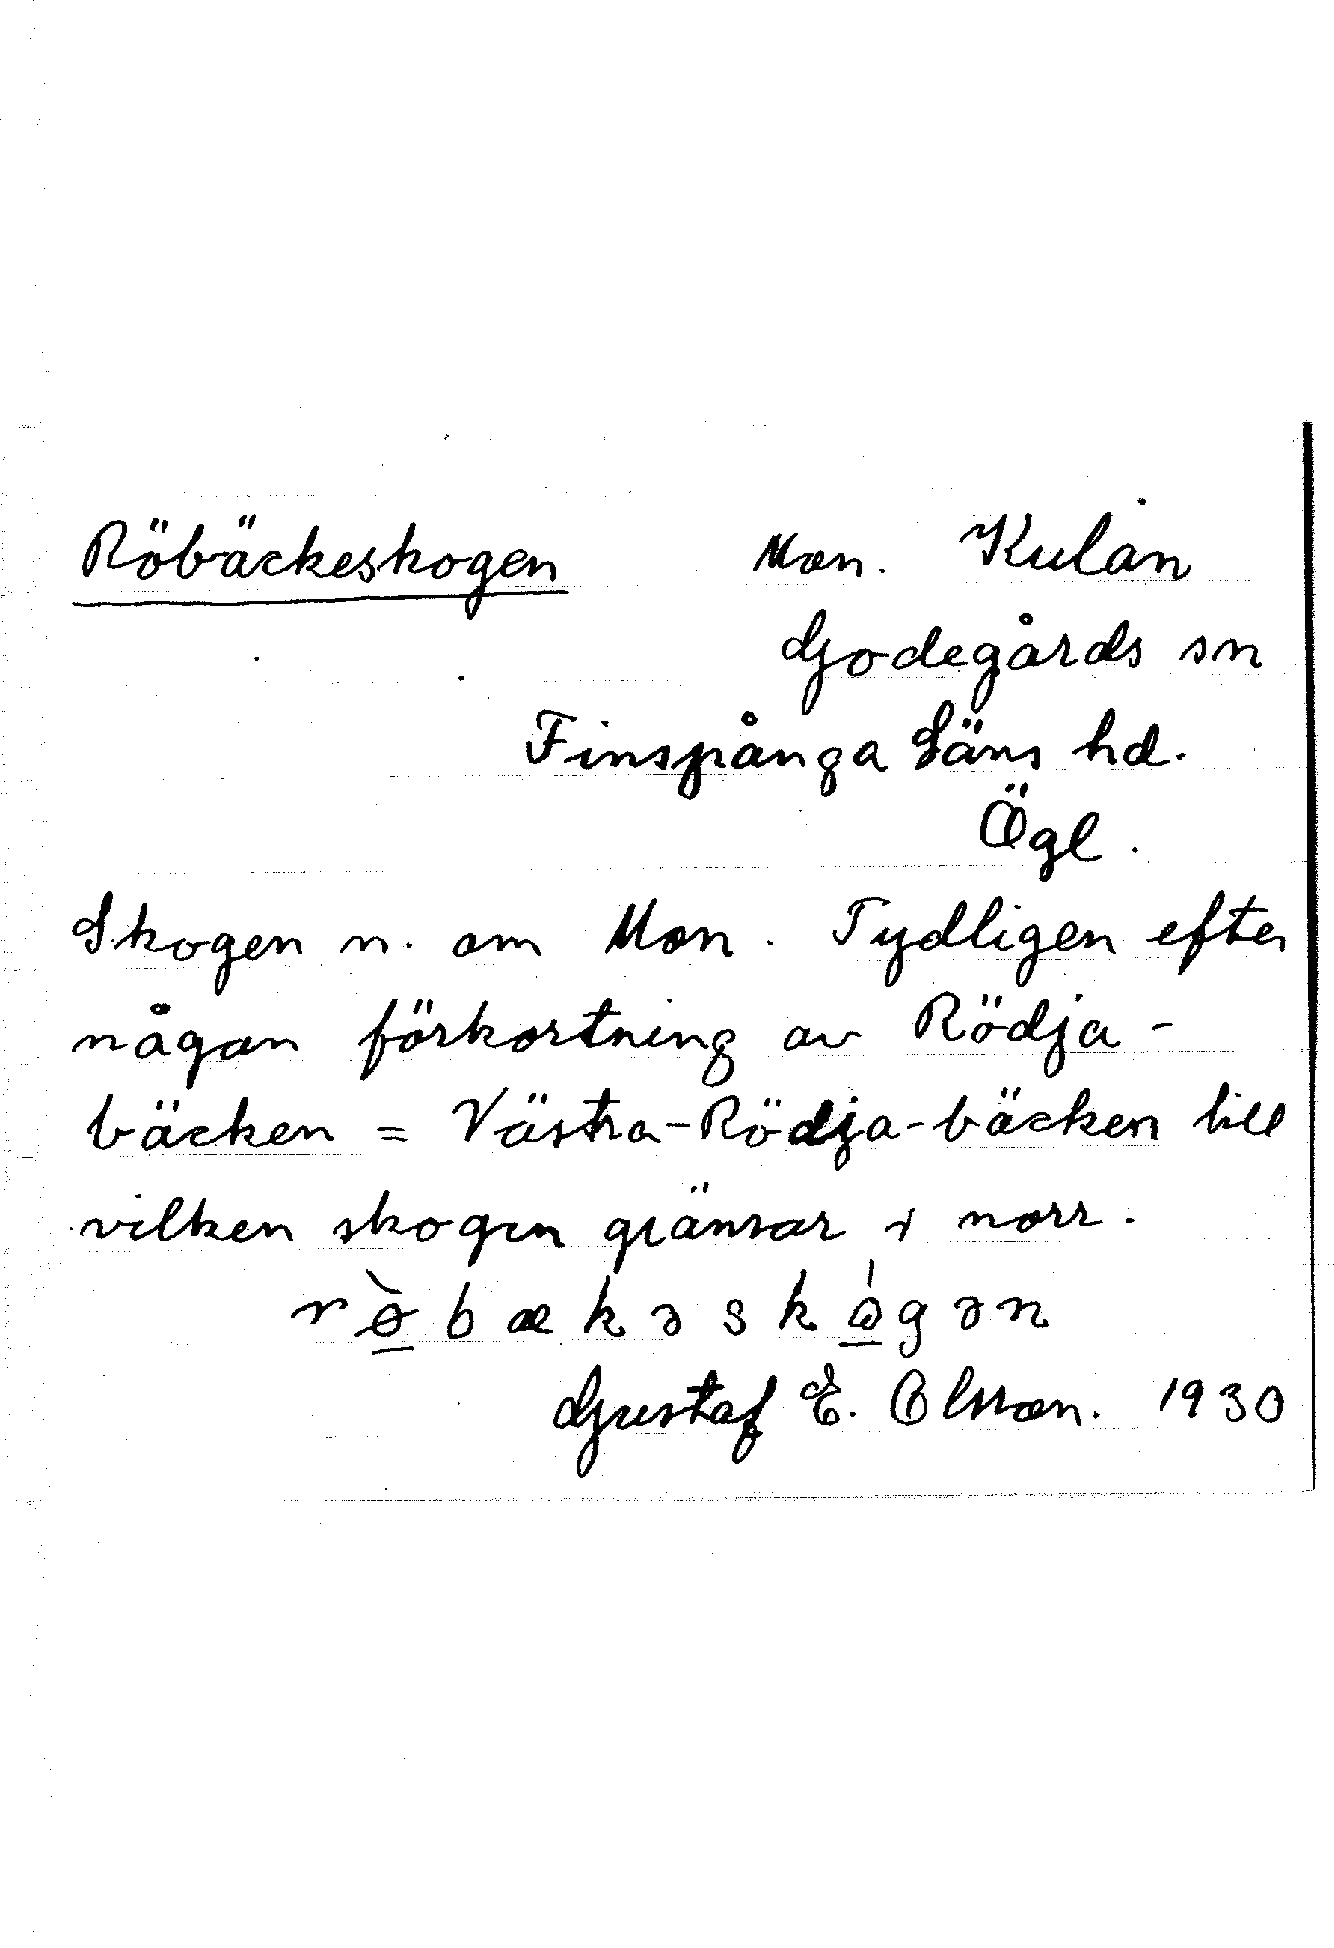 Röbäckeskogen Mon. Kulan
Godegårds sn
Finspånga Läns hd.
Ögl.
Skogen n. om Mon. Tydligen efter
någon förkortning av Rödja-
bäcken = Västra-Rödja-bäcken till
vilken skogen gränsar i norr.
rø̀bækəskógən
Gustaf E. Olsson. 1930